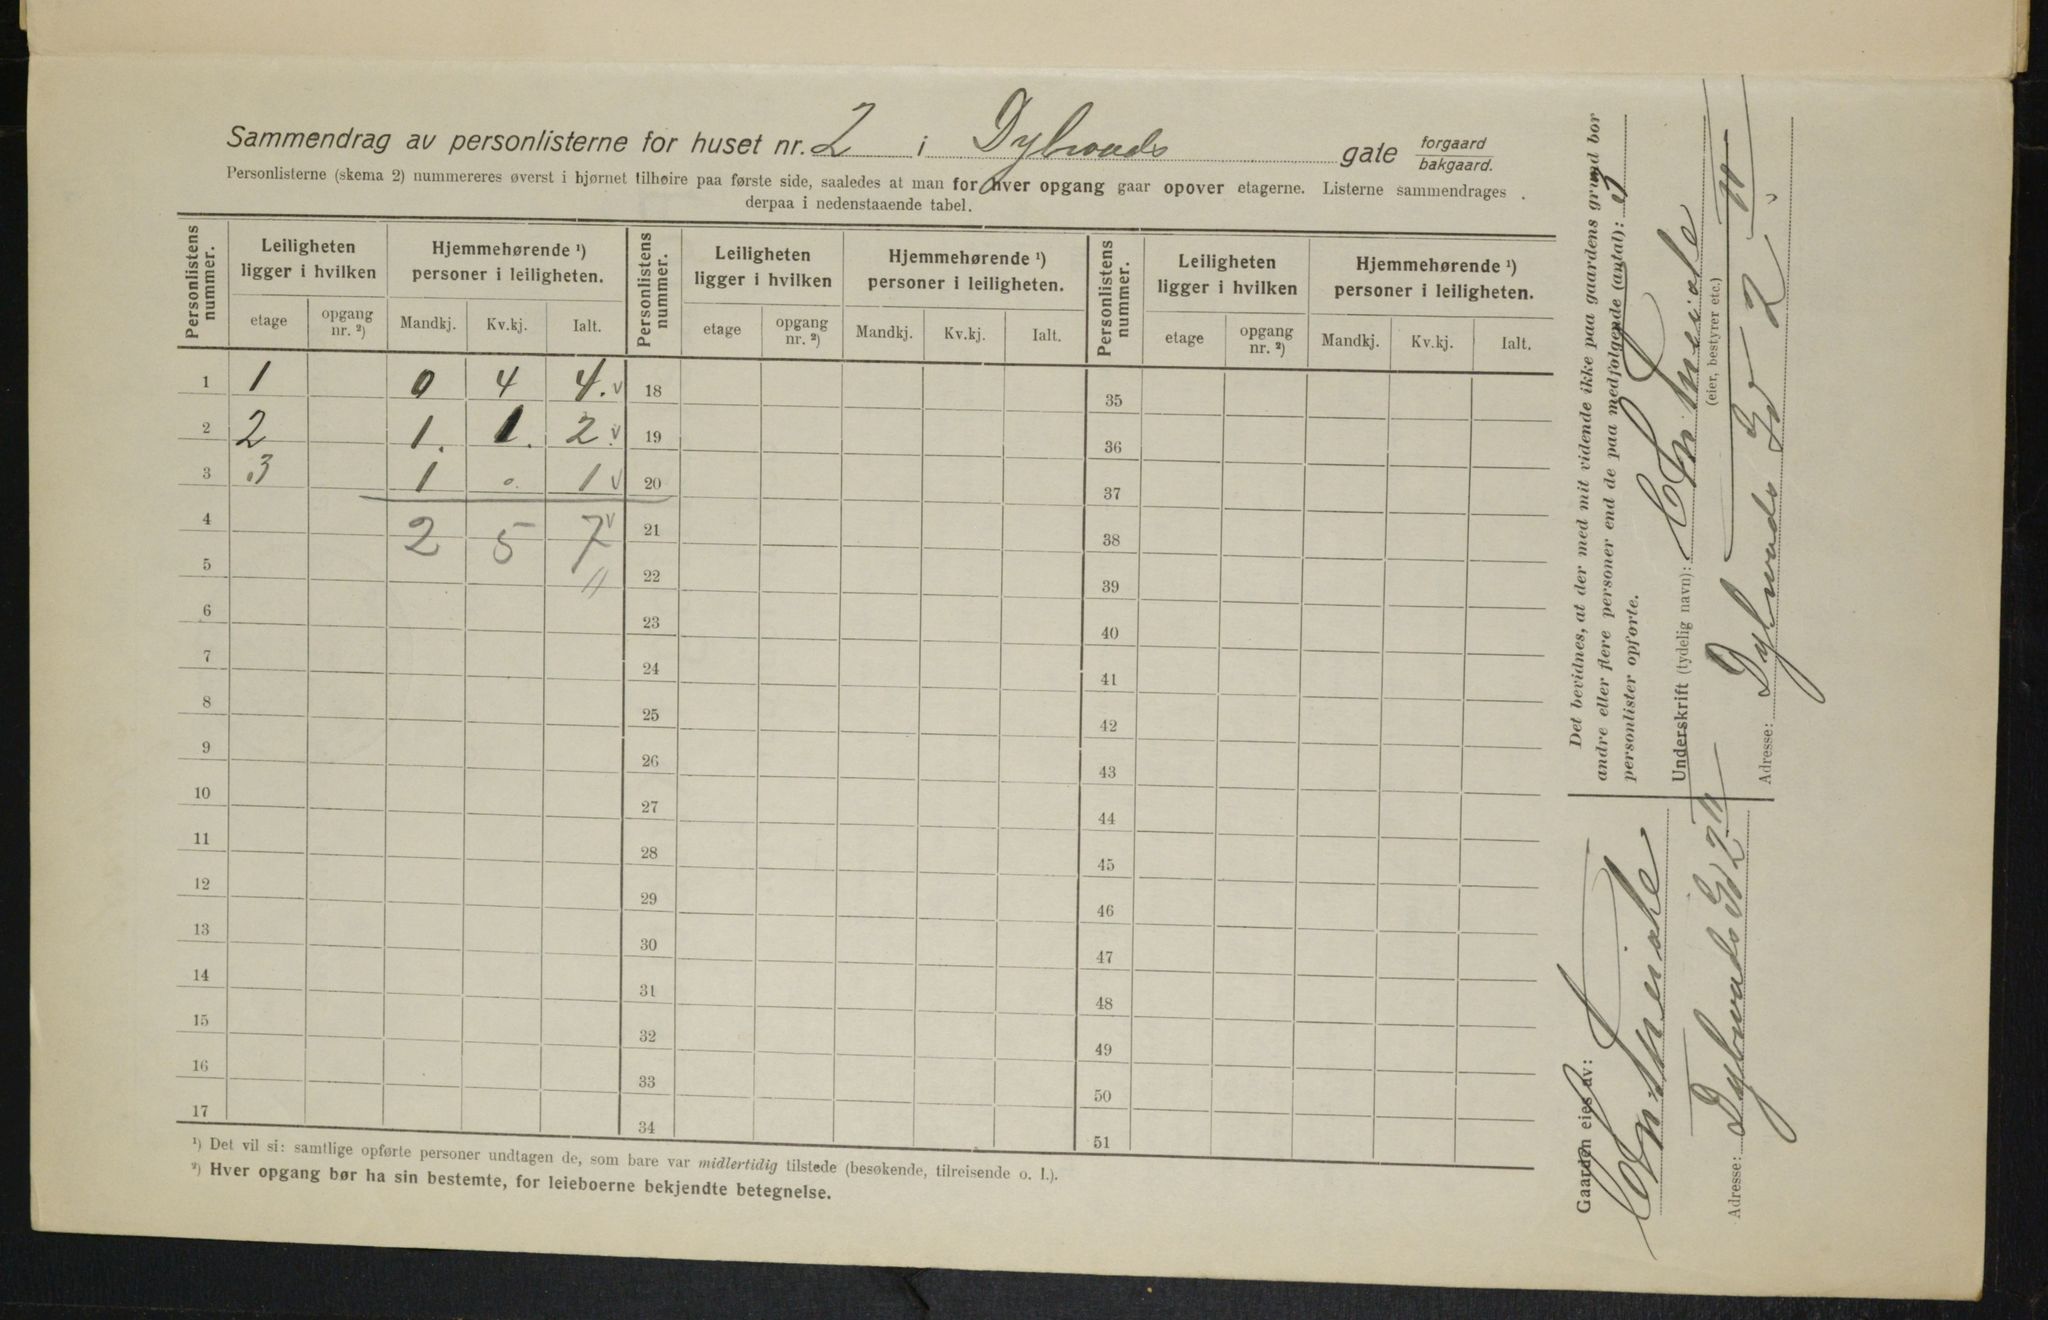 Sammendrag av personlisterne for huset nr. 2 i Dybwads gate forgaard bakgaard.
Personlisterne (skema 2) nummereres øverst i hjørnet tilhøire paa første side, saaledes at man for hver opgang gaar opover etagerne. Listerne sammendrages
derpaa i nedenstaaende tabel.
Personlistens nummer. Leiligheten ligger i hvilken Hjemmehørende ¹) personer i leiligheten. Personlistens nummer. Leiligheten ligger i hvilken Hjemmehørende ¹) personer i leiligheten. Personlistens nummer. Leiligheten ligger i hvilken Hjemmehørende ¹) personer i leiligheten.
etage opgang nr. ²) Mandkj. Kv.kj. Ialt. etage opgang nr. ²) Mandkj. Kv.kj. Ialt. etage opgang nr. ²) Mandkj. Kv.kj. Ialt.
1 1 0 4 4. v 18 35
2 2 1. 1. 2. v 19 36
3 3 1 0 1 v 20 37
4 2 5 7 v 21 38
5 22 39
6 23 40
7 24 41
8 25 42
9 26 43
10 27 44
11 28 45
12 29 46
13 30 47
14 31 48
15 32 49
16 33 50
17 34 51
¹) Det vil si: samtlige opførte personer undtagen de, som bare var midlertidig tilstede (besøkende, tilreisende o. l.).
²) Hver opgang bør ha sin bestemte, for leieboerne bekjendte betegnelse.
Det bevidnes, at der med mit vidende ikke paa gaardens grund bor
andre eller flere personer end de paa medfølgende (antal): 3
personlister opførte.
Underskrift (tydelig navn):
(eier, bestyrer etc.)
Adresse: Dybwads Gd 2
Gaarden eies av:
Adresse: Dybwads Gd 2